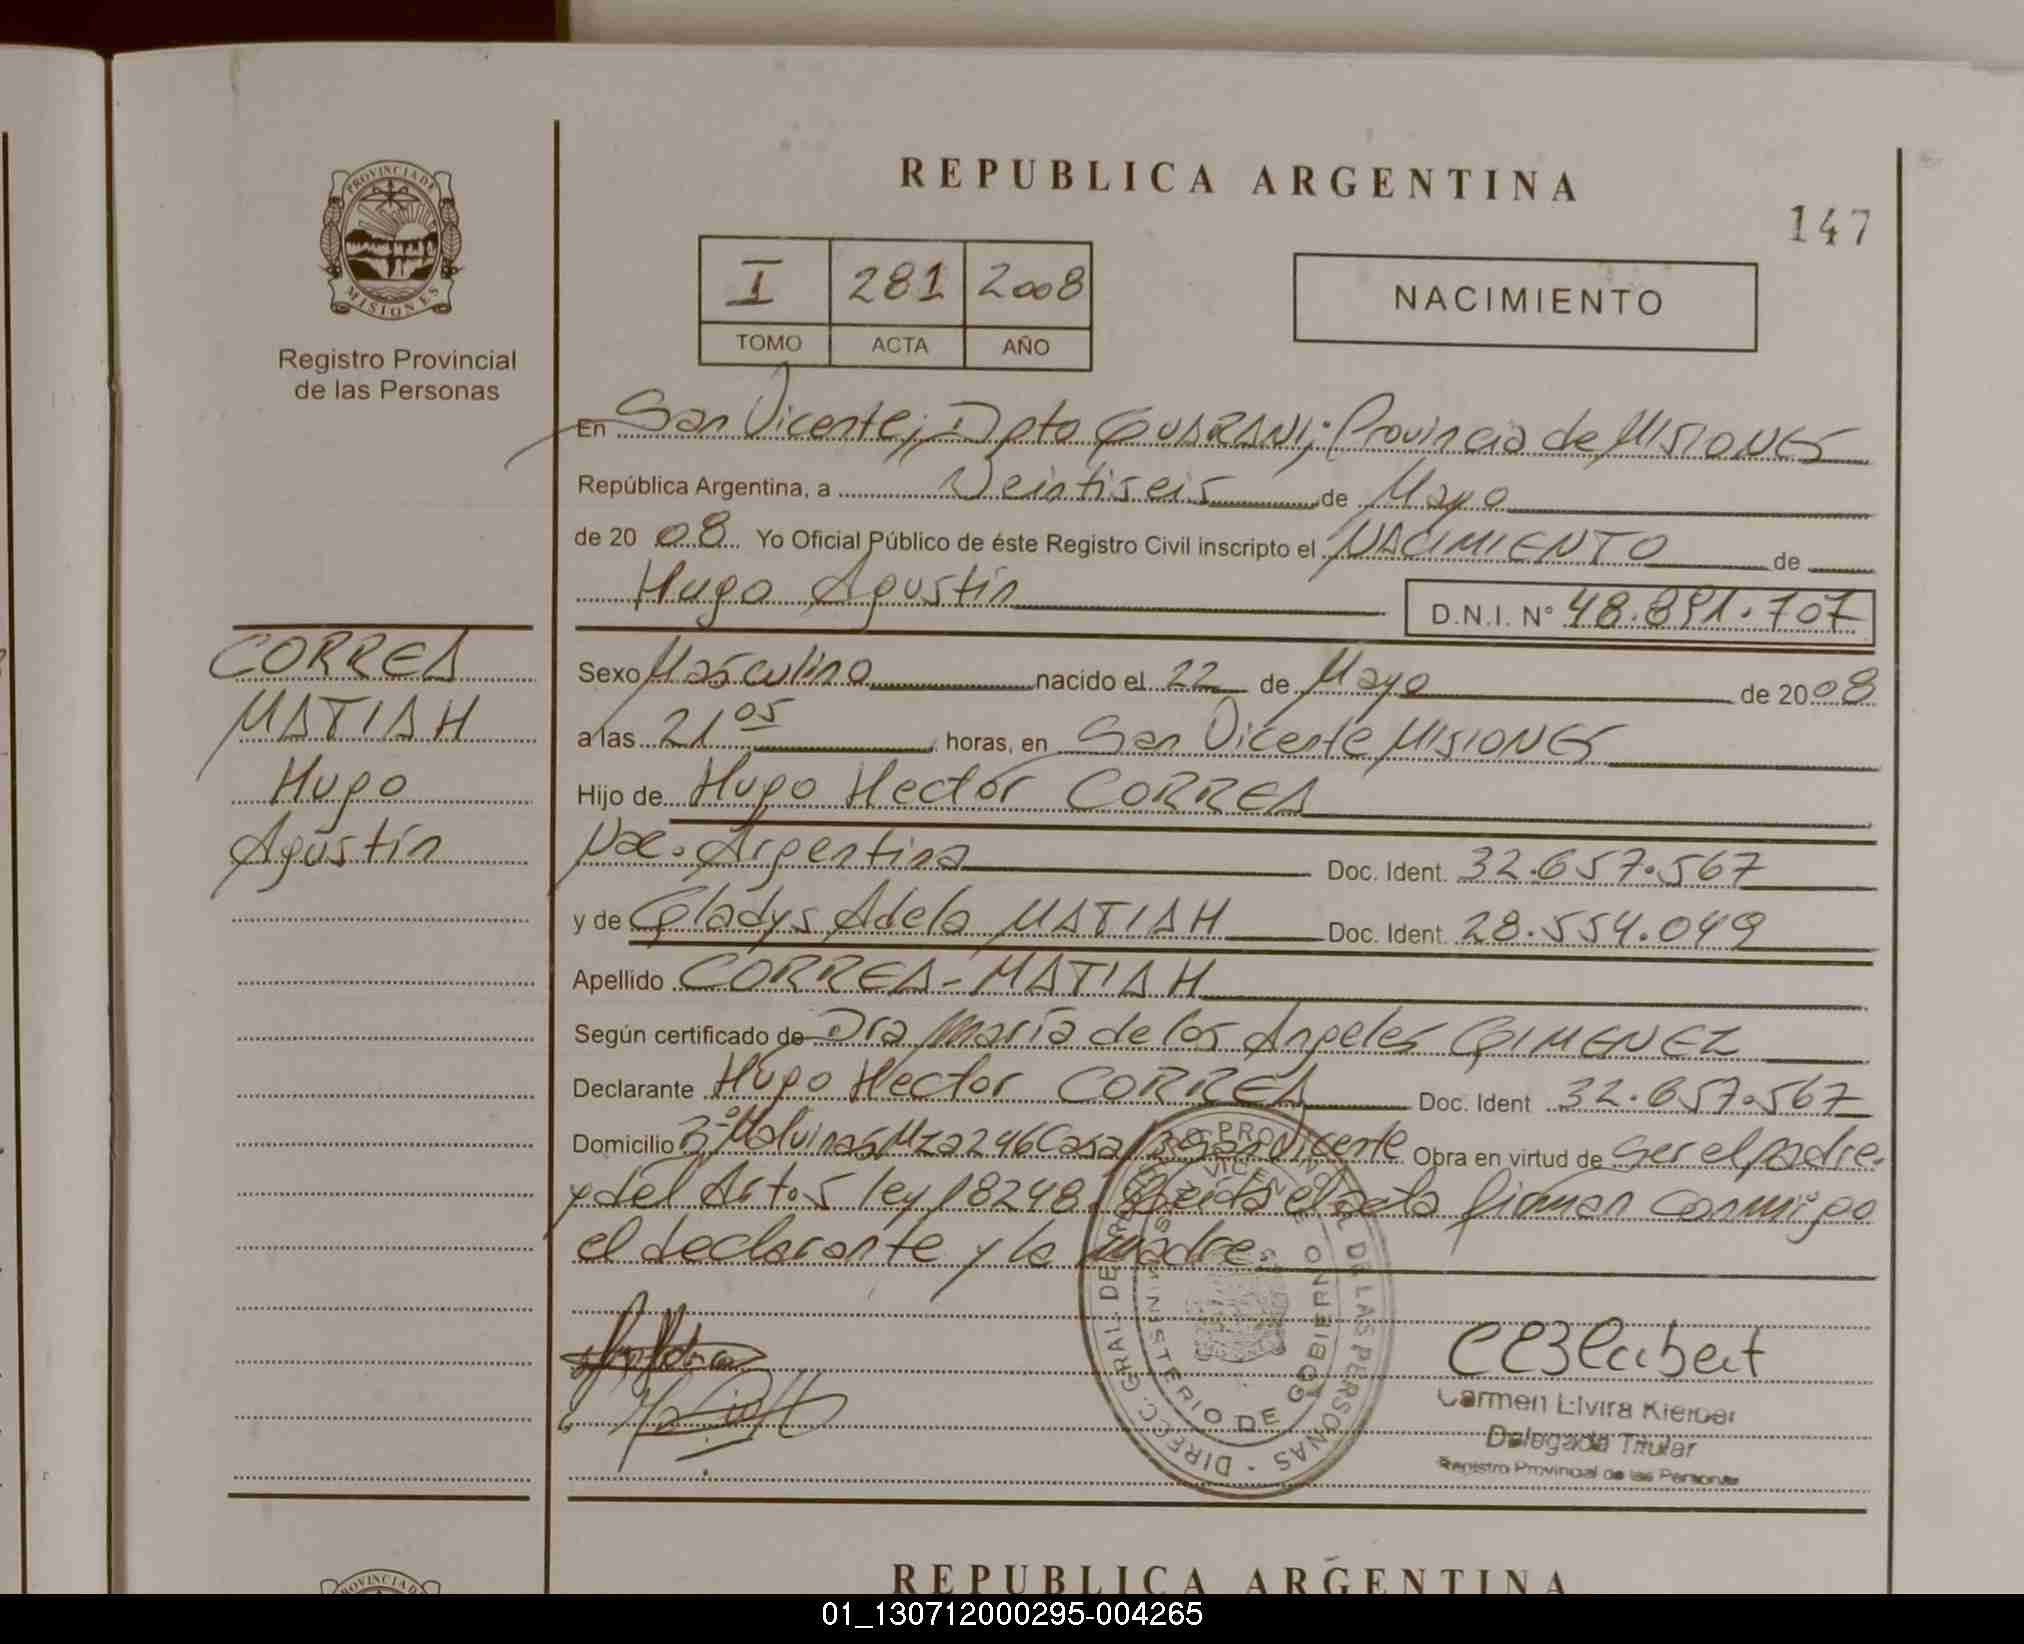 REPUBLICA ARGENTINA
147
PROVINCIA DE
MISIONES
Registro Provincial
de las Personas
I 281 2008
TOMO ACTA AÑO
NACIMIENTO
En San Vicente, Dpto GUARANI, Provincia de MISIONES
República Argentina, a Veintiseis de Mayo
de 2008 Yo Oficial Público de éste Registro Civil inscripto el NACIMIENTO de
Hugo Agustín
D.N.I. N° 48.891.707
CORREA
MATIAH
Hugo
Agustín
Sexo Masculino nacido el 22 de Mayo de 2008
a las 21 05 horas, en San Vicente MISIONES
Hijo de Hugo Hector CORREA
Nac. Argentina Doc. Ident. 32.657.567
y de Gladys Adela MATIAH Doc. Ident. 28.554.049
Apellido CORREA-MATIAH
Según certificado de Dra María de los Angeles GIMENEZ
Declarante Hugo Hector CORREA Doc. Ident 32.657.567
Domicilio Bº Malvinas Mza 246 Casa San Vicente Obra en virtud de ser el padre
y del Art. 5 ley 18248. Leida el acta firman conmigo
el declarante y la madre.
DIRECC. GRAL. DEL REGISTRO PROVINCIAL DE LAS PERSONAS
MINISTERIO DE GOBIERNO
Carmen Elvira Kleiber
Delegada Titular
Registro Provincial de las Personas
PROVINCIA D
REPUBLICA ARGENTINA
01_130712000295-004265